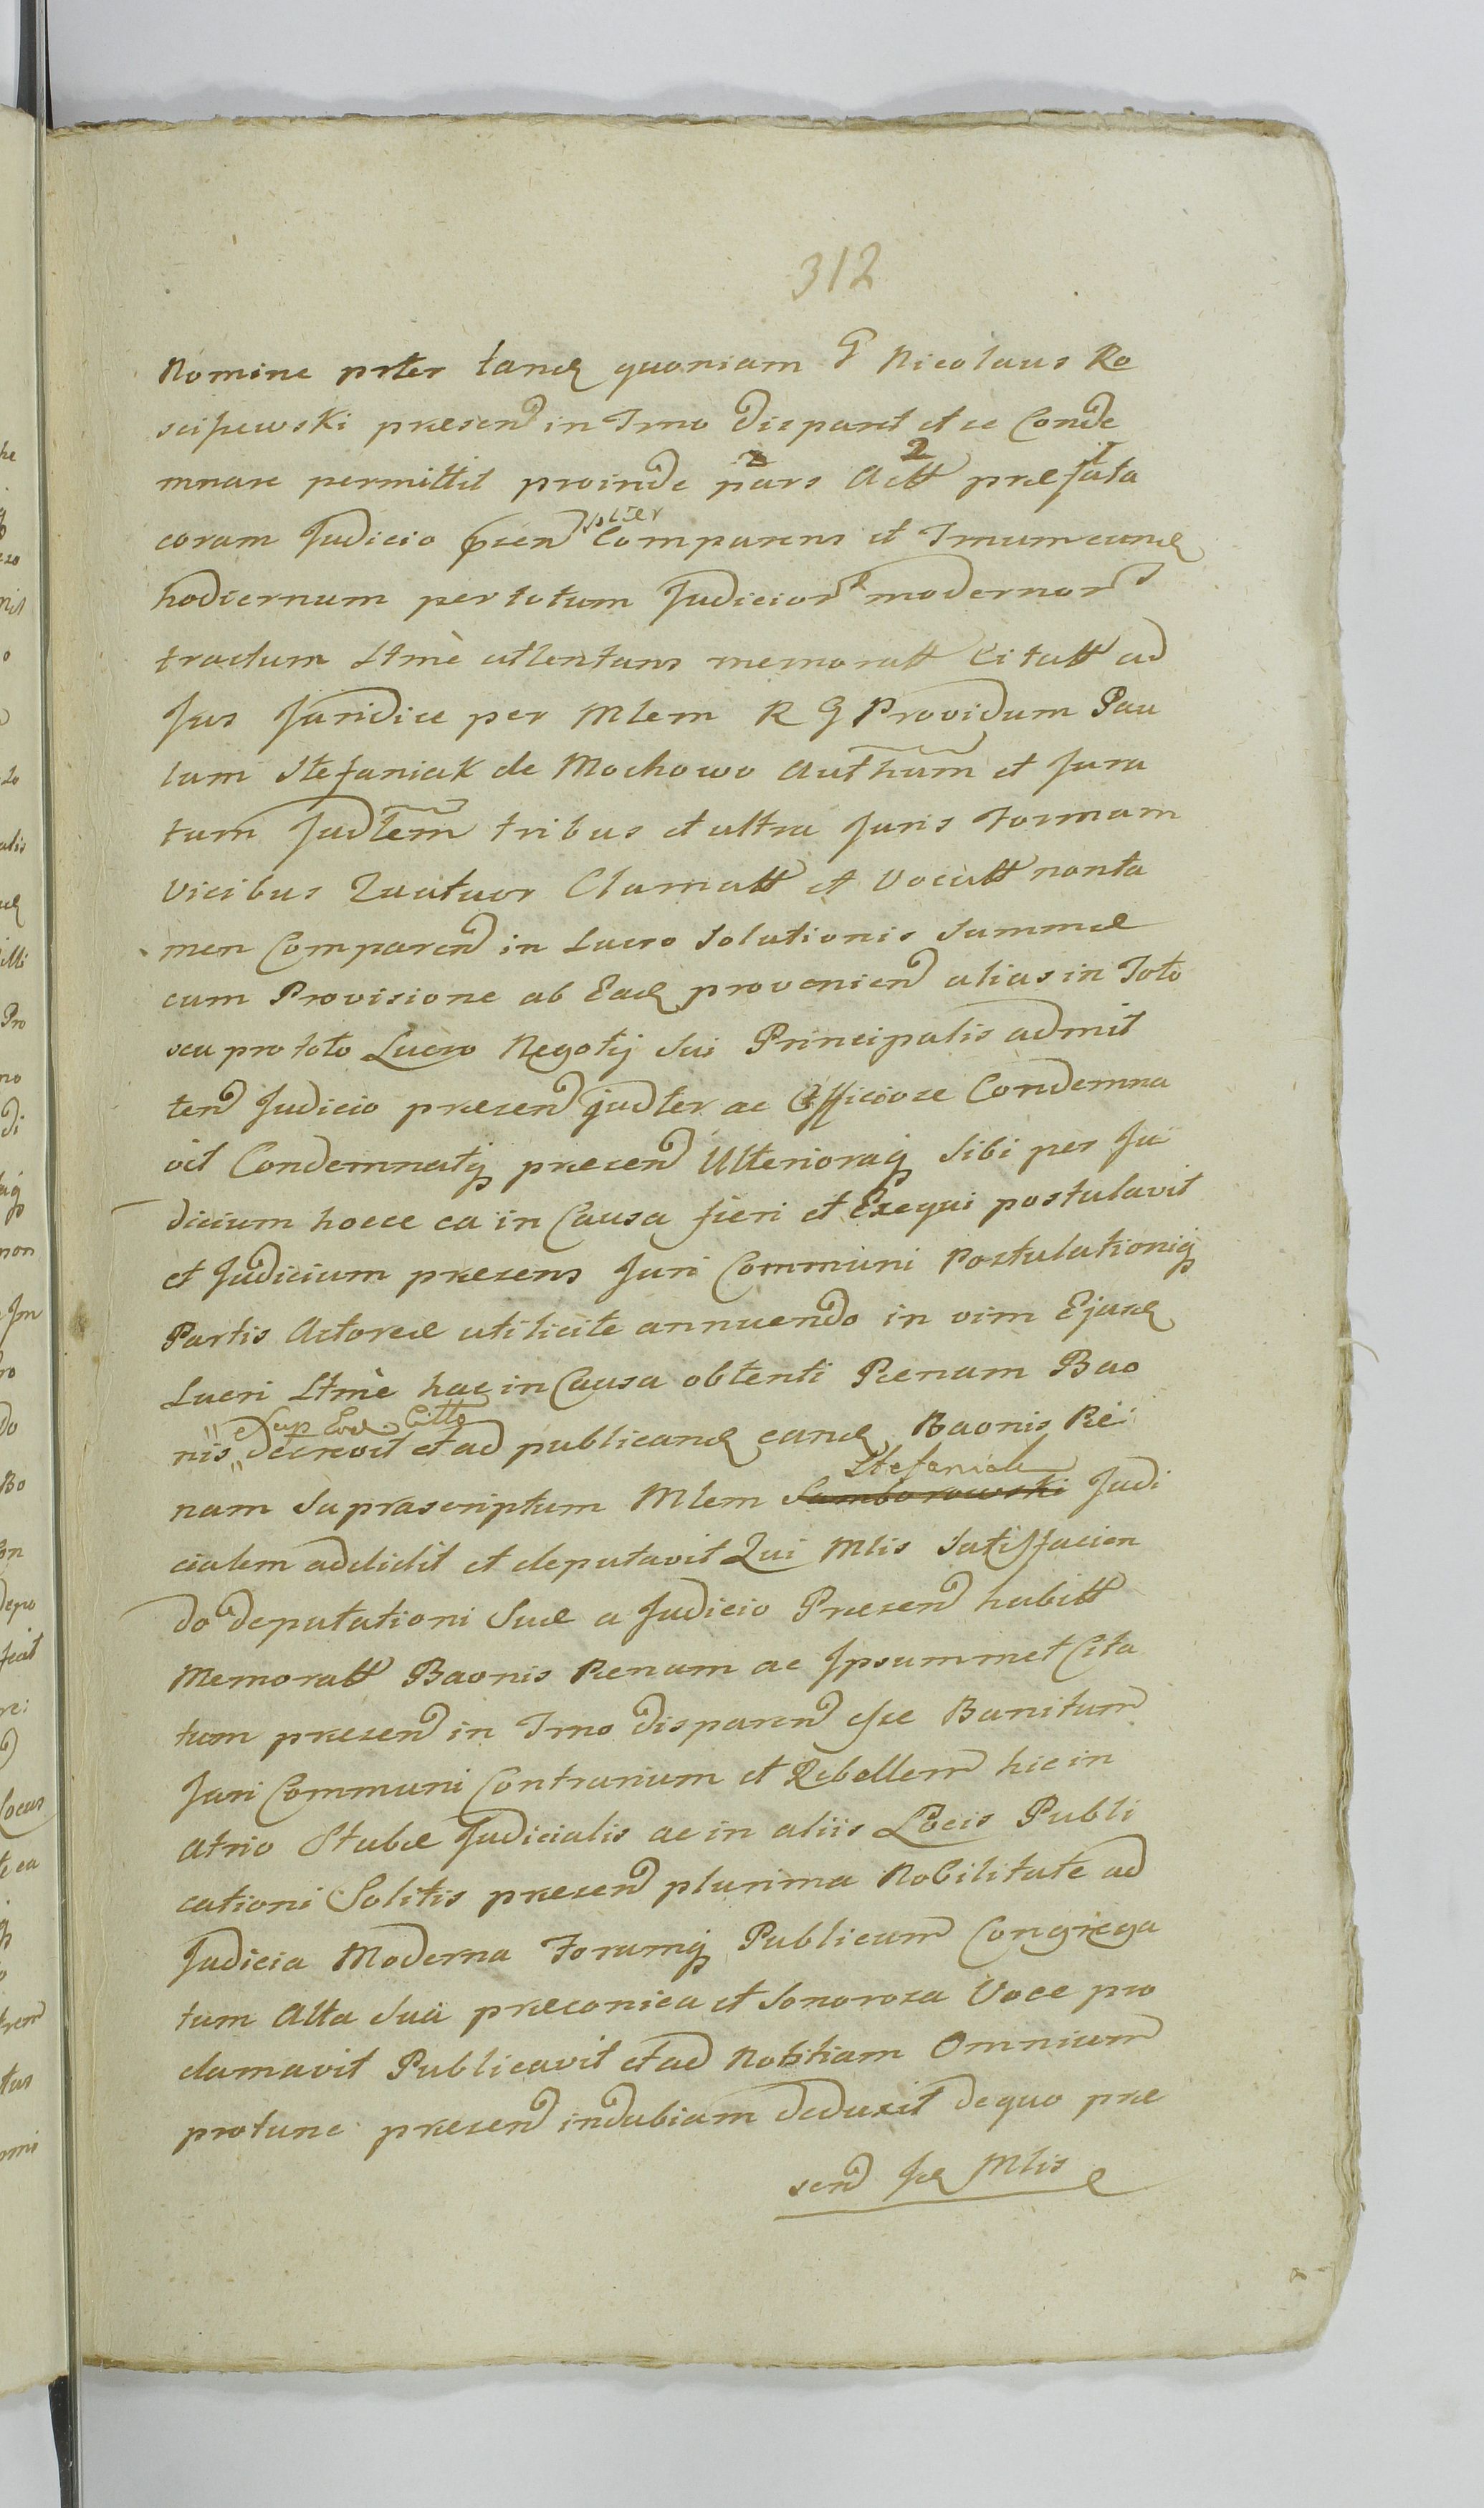 312
Nomine prter tand quoniam G Nicolaus Ro
sciszewski presend in Trno disparet et se Conde
mnare permittit proinde pars Actt præfata
coram Judicio presen spliter Comparens et Trnum eund
hodiernum per totum Judicior modernor
tractum Ltmè attentans memoratt Citatt ad
Jus Juridice per Mlem R G Providum Pau
lum Stefaniak de Mochowo Authum et Jura
tum Judlem tribus et ultra Juris Formam
Vicibus Quatuor Clamatt et Vocatt nonta
men Comparend in Lucro Solutionis Summæ
cum Provisione ab Ead proveniend alias in Toto
seu pro toto Lucro Negotij Sui Principalis admit
tend Judicio præsend judter ac Officiose Condemna
vit Condemnatq præsend Ulterioraq Sibi per Ju
dicium hocce ea in Causa fieri et Exequi postulavit
et Judicium præsens Juri Communi Postulationiq
Partis Actoreæ utilicite annuendo in vim Ejusd
Lucri Ltmè hac in Causa obtenti Pænam Bao
nis " sup Eod Citto " decrevit et ad publicand eand Baonis Pæ:
nam Suprascriptum Mlem Samborowski Stefaniak Judi
cialem addidit et deputavit Qui Mlis Satisfacien
do deputationi Suæ a Judicio Præsend habitt
Memoratt Baonis Pænam ac Ipsummet Cita
tum præsend in Trno disparend esse Banitum
Juri Communi Contrarium et Rebellem hic in
atrio Stubæ Judicialis ac in aliis Locis Publi
cationi Solitis præsend plurima Nobilitate ad
Judicia Moderna Forumq Publicum Congrega
tum Alta Sua præconica et Sonorosa Voce pro
clamavit Publicavit et ad Notitiam Omnium
protunc præsend indubiam deduxit dequo præ
send Jd Mlis